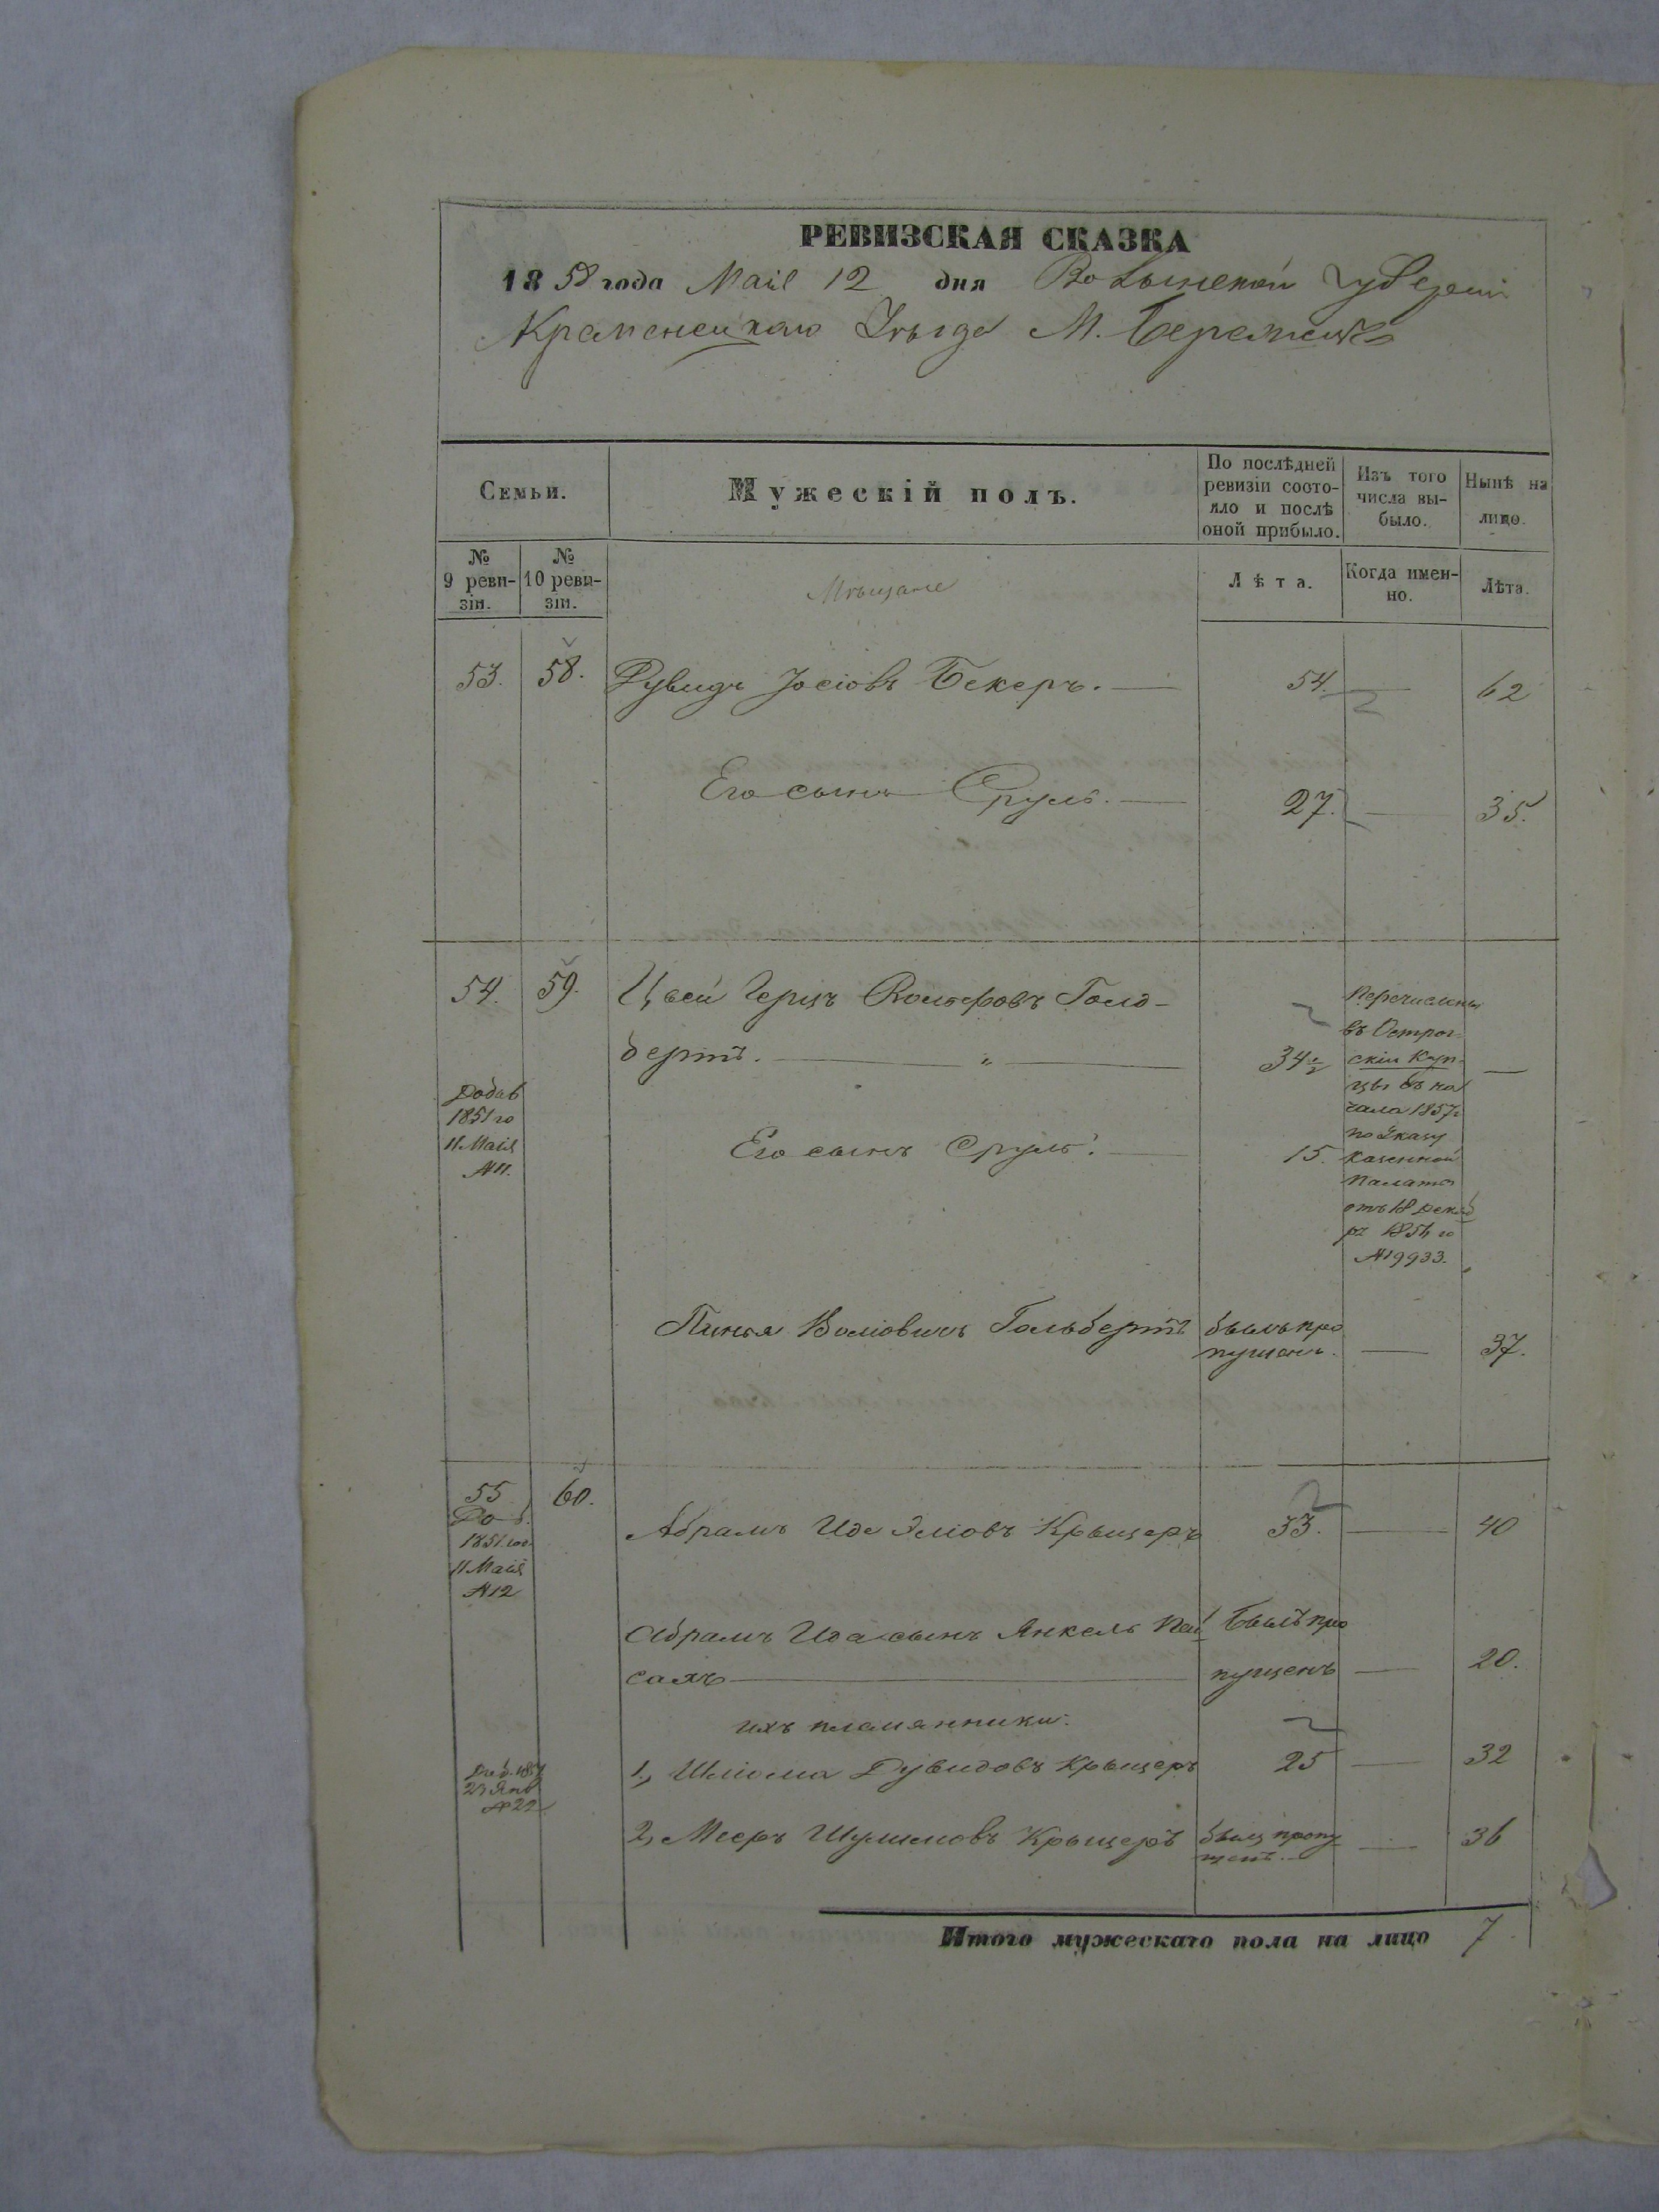 РЕВИЗСКАЯ СКАЗКА
1858 года Маія 12 дня Волынской Губерніи
Кременецкаго Уѣзда М. Бережецъ
Семьи.
Мужескій полъ.
По послѣдней ревизіи состояло и послѣ оной прибыло.
Изъ того числа выбыло.
Нынѣ на лицо.
№ 9 ревизіи.
№ 10 ревизіи.
Мѣщане
Лѣта.
Когда именно.
Лѣта.
53. 58. Рувидъ Іосіовъ Бекеръ. — 54. — 62
Его сынъ Сруль. — 27. — 35.
54. 59. Цвей Герцъ Вольфовъ Голд-
бертъ. — " — 34½ —
Добав
1851 го
11 Маія
№11.
Его сынъ Сруль. — 15.
Перечислены
въ Острог-
скіи Куп-
цы съ на
чала 1857 г
по Указу
Казенной
Палаты
отъ 18 декаб
ря 1856 го
№19933.
Пинья Воліовичъ Гольбертъ былъ про
пущенъ. — 37.
55 60.
Доб.
1851 го
11 Маія
№12
Абрамъ Иде Эліовъ Крыщеръ 33. — 40
Абрамъ Ида сынъ Янкель Пей Былъ про
сахъ — пущенъ — 20.
ихъ племянники.
Доб. 185
23 Янв
№22
1, Шліома Дувидовъ Крыщеръ 25 — 32
2, Мееръ Шулимовъ Крыщеръ былъ пропу
щенъ. — 36
Итого мужескаго пола на лицо 7